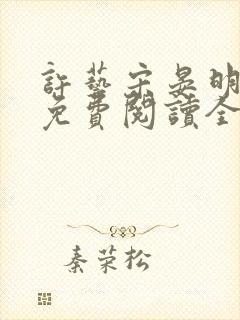 許藝宋晏明
免費閱讀全
秦荣松